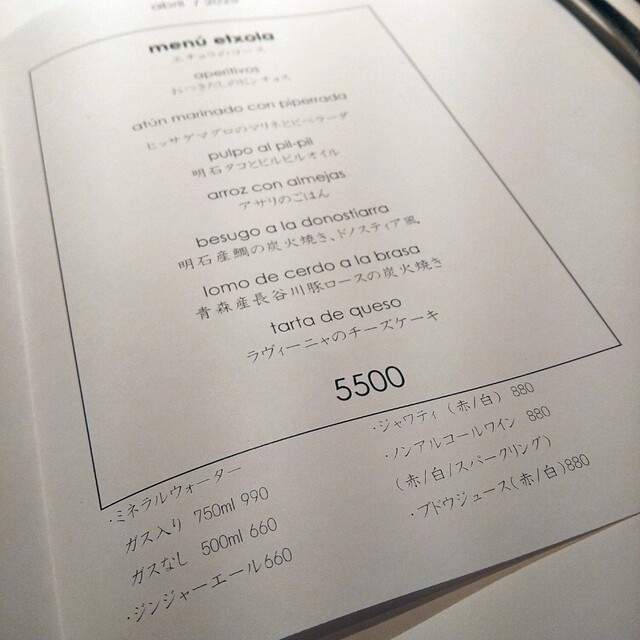 abril / 2025
menú etxola
エチョラのコース
aperitivos
おつきだしのピンチョス
atún marinado con piperrada
ヒッサゲマグロのマリネとピペラーダ
pulpo al pil-pil
明石タコとピルピルオイル
arroz con almejas
アサリのごはん
besugo a la donostiarra
明石産鯛の炭火焼き、ドノスティア風
lomo de cerdo a la brasa
青森産長谷川豚ロースの炭火焼き
tarta de queso
ラヴィーニャのチーズケーキ
5500
・ミネラルウォーター
ガス入り 750ml 990
ガスなし 500ml 660
・ジンジャーエール660
・ジャワティ (赤/白) 880
・ノンアルコールワイン 880
(赤/白/スパークリング)
・ブドウジュース(赤/白)880